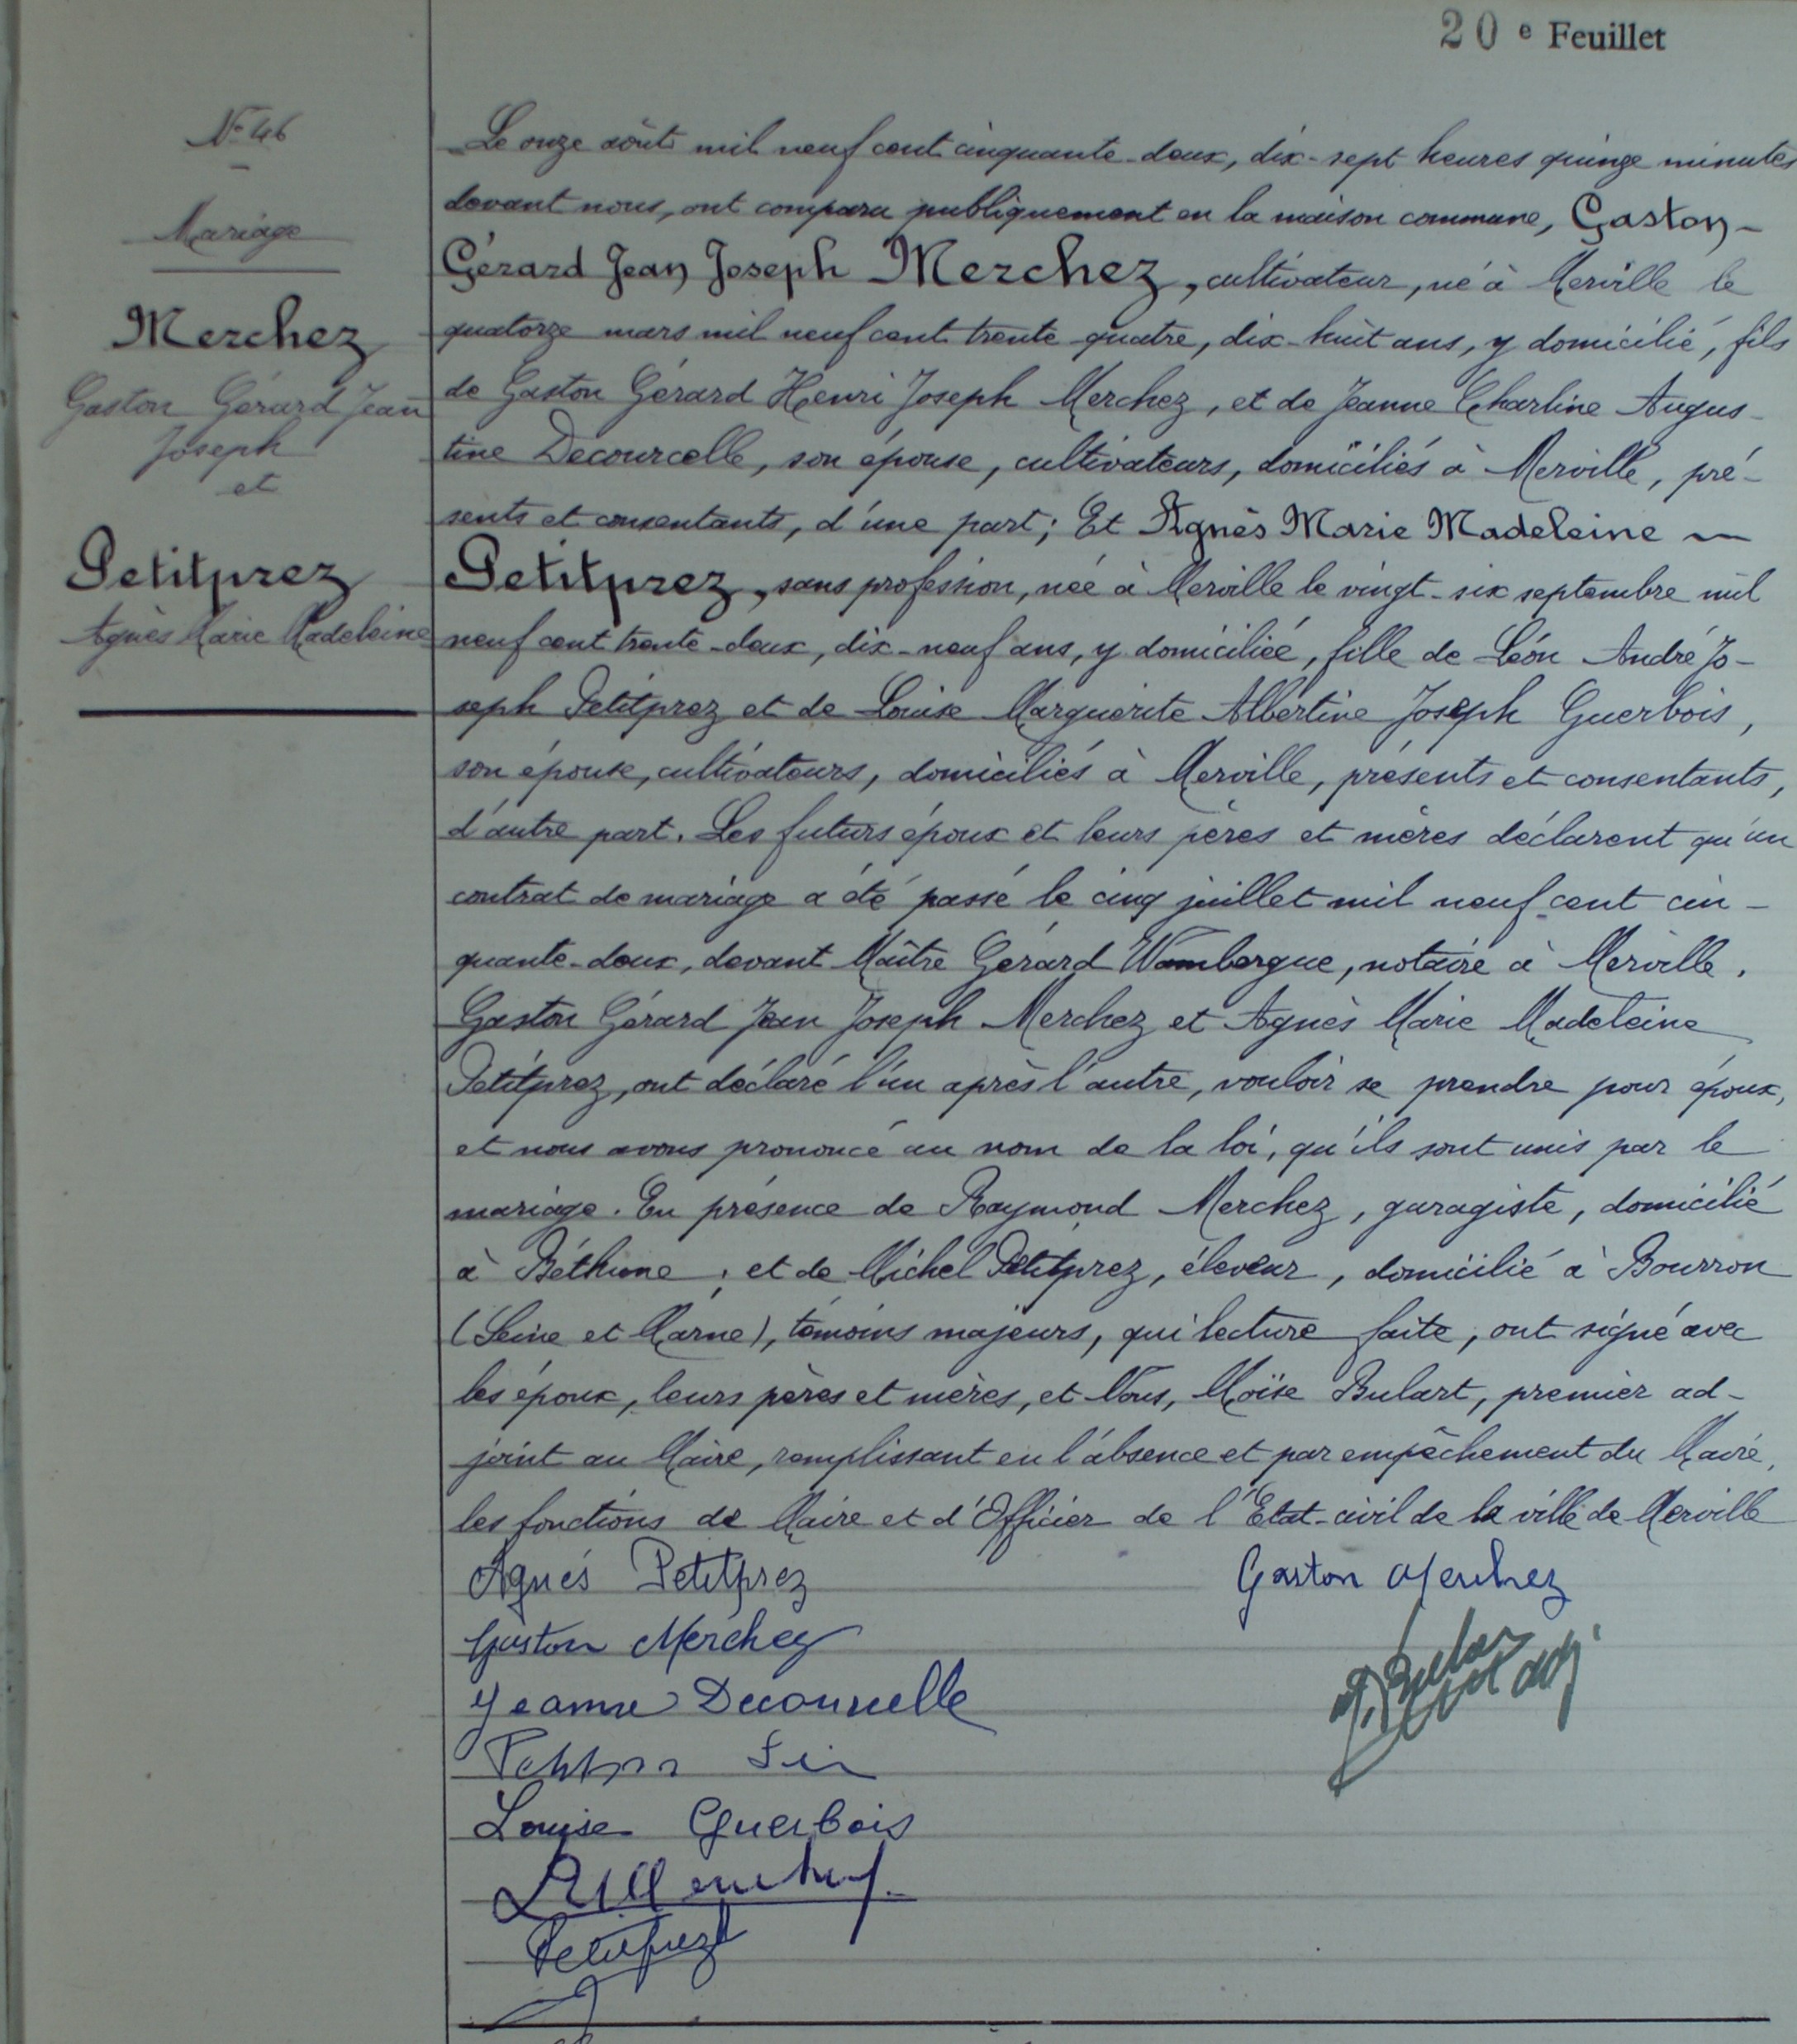 20 e Feuillet
N° 46
Mariage
Merchez
Gaston Gérard Jean
Joseph
et
Petitprez
Agnès Marie Madeleine
Le onze août mil neuf cent cinquante-deux, dix-sept heures quinze minutes
devant nous, ont comparu publiquement en la maison commune, Gaston-
Gérard Jean Joseph Merchez, cultivateur, né à Merville le
quatorze mars mil neuf cent trente-quatre, dix-huit ans, y domicilié, fils
de Gaston Gérard Henri Joseph Merchez, et de Jeanne Charline Augus-
tine Decourcelle, son épouse, cultivateurs, domiciliés à Merville, pré-
sents et consentants, d'une part; Et Agnès Marie Madeleine —
Petitprez, sans profession, née à Merville le vingt-six septembre mil
neuf cent trente-deux, dix-neuf ans, y domiciliée, fille de Léon André Jo-
seph Petitprez et de Louise Marguerite Albertine Joseph Guerbois,
son épouse, cultivateurs, domiciliés à Merville, présents et consentants,
d'autre part. Les futurs époux et leurs pères et mères déclarent qu'un
contrat de mariage a été passé le cinq juillet mil neuf cent cin-
quante-deux, devant Maître Gérard Wambergue, notaire à Merville.
Gaston Gérard Jean Joseph Merchez et Agnès Marie Madeleine
Petitprez, ont déclaré l'un après l'autre, vouloir se prendre pour époux,
et nous avons prononcé au nom de la loi, qu'ils sont unis par le
mariage. En présence de Raymond Merchez, garagiste, domicilié
à Béthune; et de Michel Petitprez, éleveur, domicilié à Bourron
(Seine et Marne), témoins majeurs, qui lecture faite, ont signé avec
les époux, leurs pères et mères, et Nous, Moïse Bulart, premier ad-
joint au Maire, remplissant en l'absence et par empêchement du Maire,
les fonctions de Maire et d'Officier de l'Etat-civil de la ville de Merville
Agnès Petitprez
Gaston Merchez
Gaston Merchez
Jeanne Decourcelle
Louise Guerbois
Petitprez